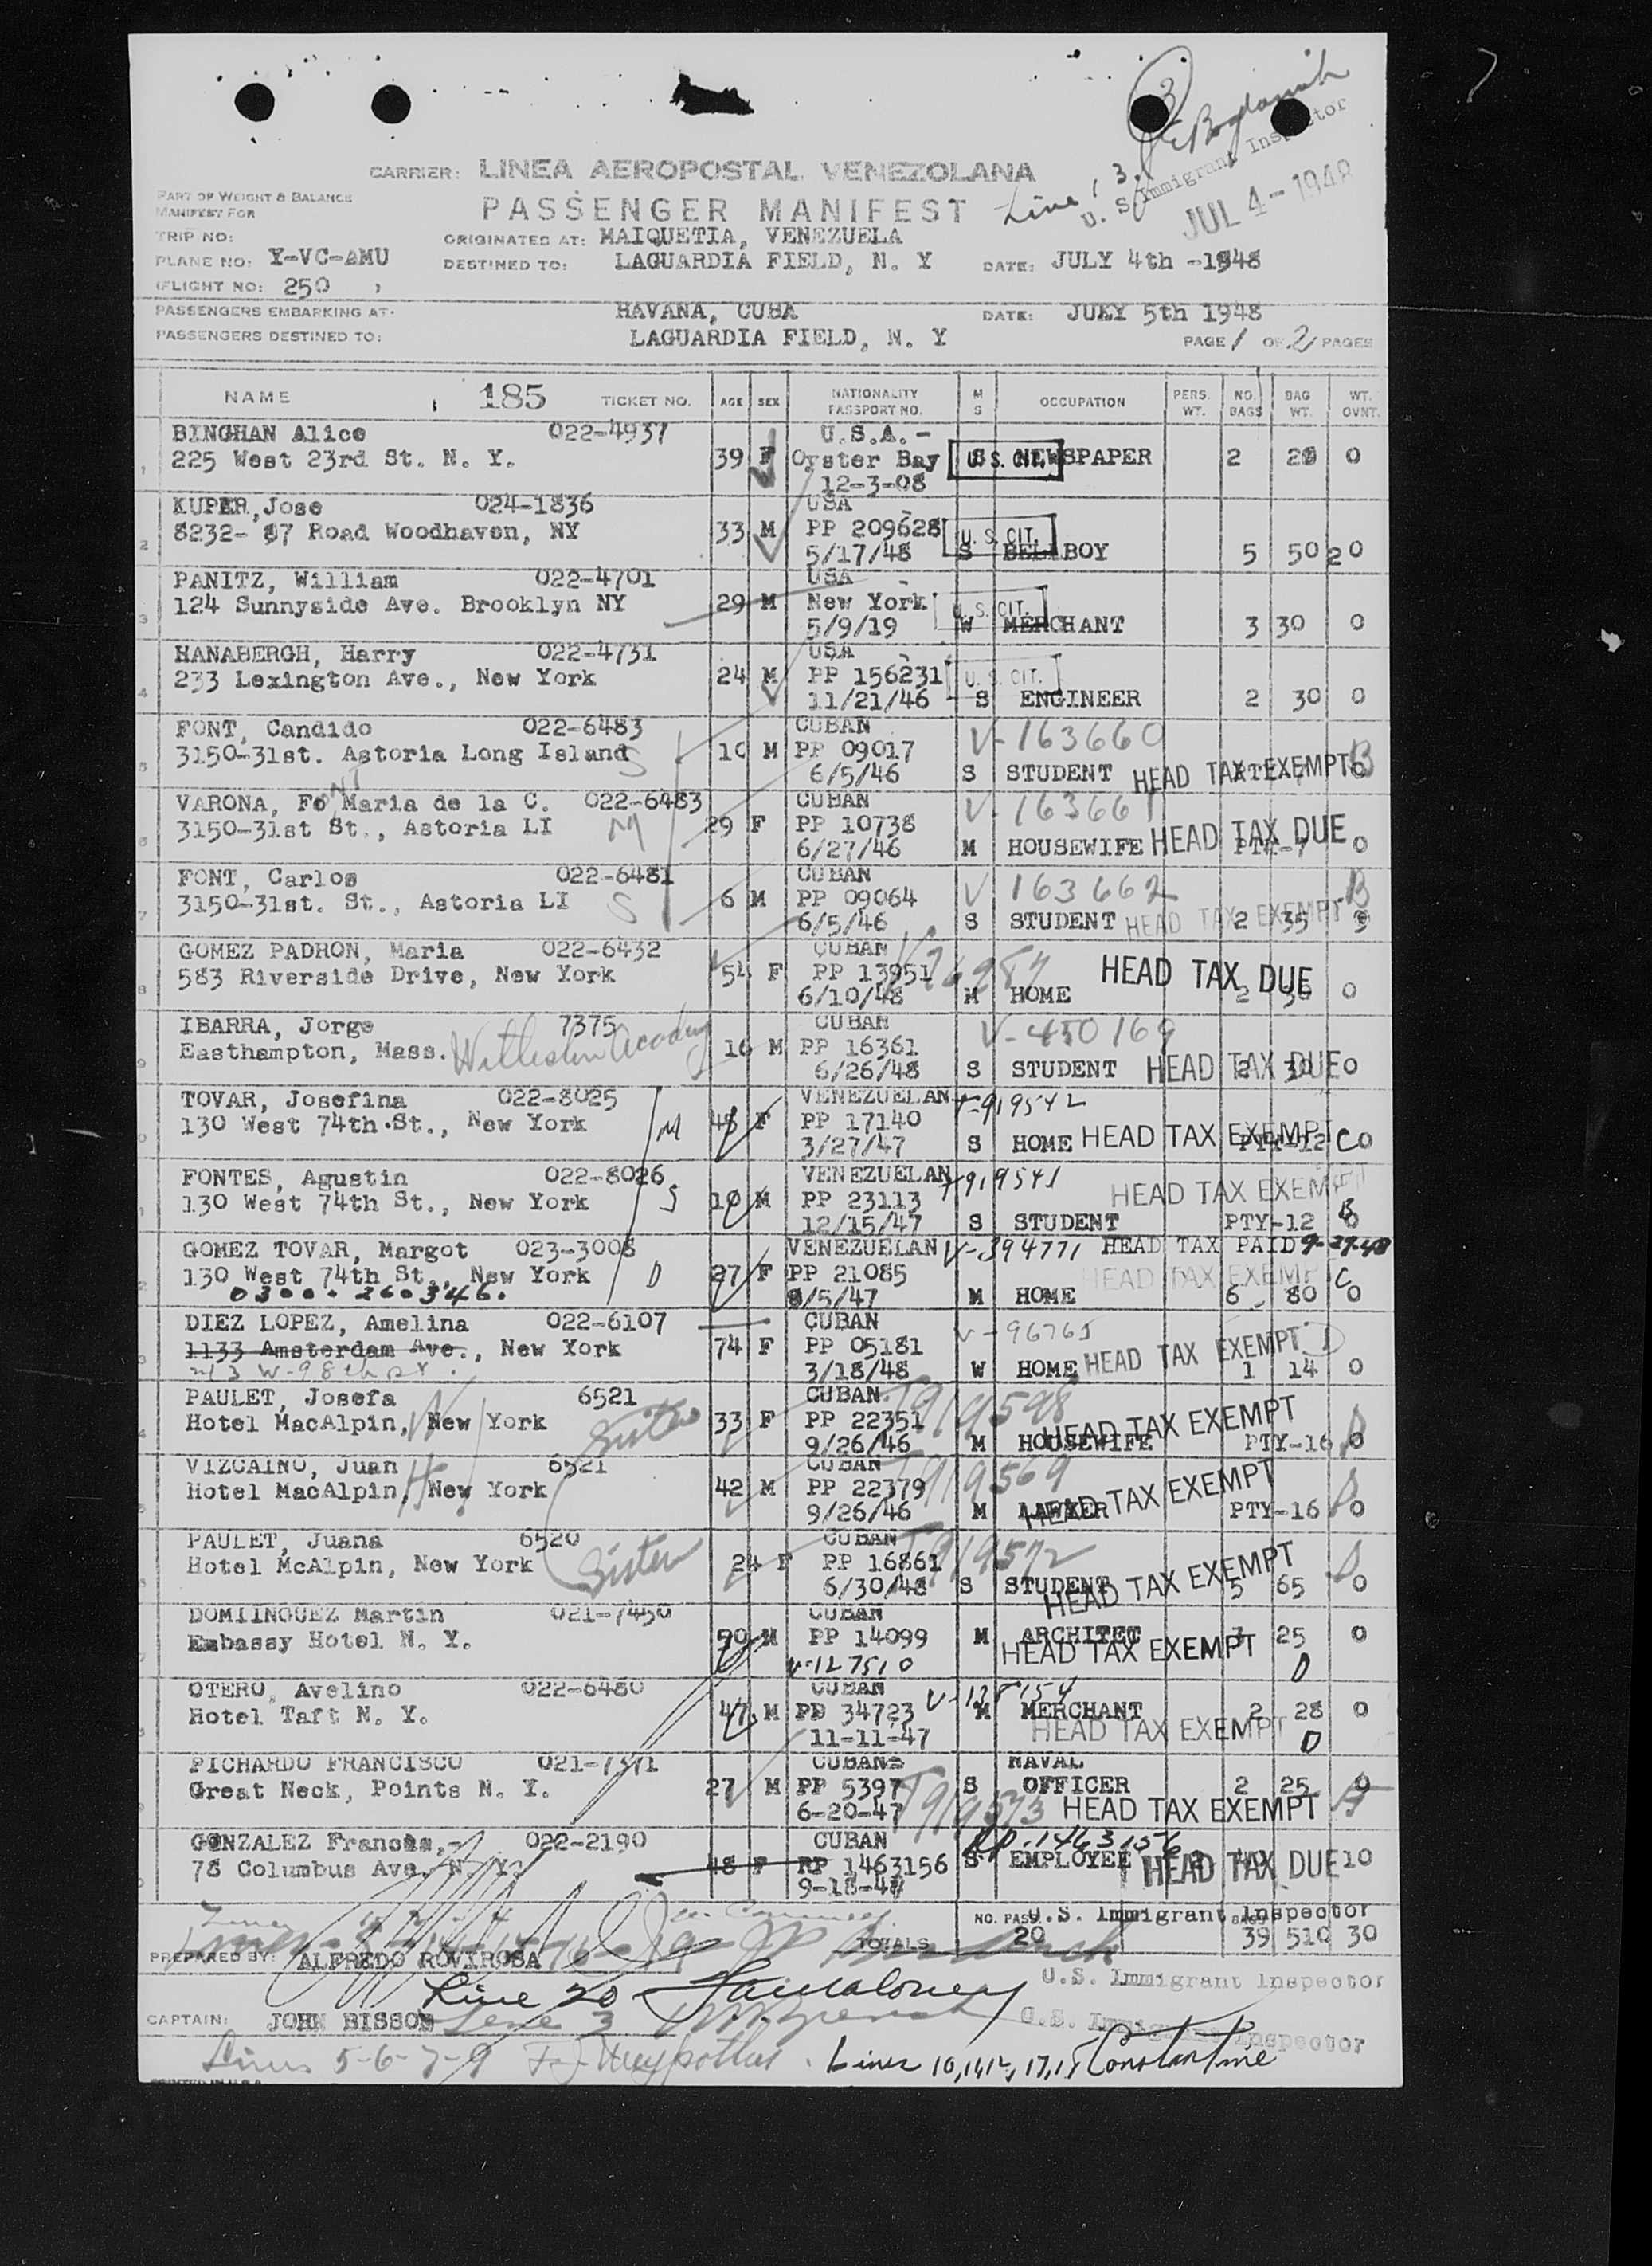 3
Bogdanich
U. S. Immigrant Inspector
Line 1 3.
JUL 4 - 1948
CARRIER: LINEA AEROPOSTAL VENEZOLANA
PART OF WEIGHT & BALANCE
MANIFEST FOR
PASSENGER MANIFEST
TRIP NO:
ORIGINATES AT: MAIQUETIA, VENEZUELA
PLANE NO: Y-VC-AMU
DESTINED TO: LAGUARDIA FIELD, N. Y DATE: JULY 4th -1948
FLIGHT NO: 250
PASSENGERS EMBARKING AT: HAVANA, CUBA DATE: JULY 5th 1948
PASSENGERS DESTINED TO: LAGUARDIA FIELD, N. Y PAGE 1 OF 2 PAGES
NAME 185 TICKET NO. AGE SEX NATIONALITY PASSPORT NO. M S OCCUPATION PERS. WT. NO. BAGS BAG WT. WT. OVNT.
BINGHAN Alice 022-4937 U.S.A.-
1 225 West 23rd St. N. Y. 39 F Oyster Bay S U. S. CIT. NEWSPAPER 2 28 0
12-3-08
KUPER, Jose 024-1836 USA -
2 8232- 87 Road Woodhaven, NY 33 M PP 209628 U. S. CIT.
5/17/48 S BELLBOY 5 50 20
PANITZ, William 022-4701 USA -
3 124 Sunnyside Ave. Brooklyn NY 29 M New York U. S. CIT.
5/9/19 W MERCHANT 3 30 0
HANABERGH, Harry 022-4731 USA -
4 233 Lexington Ave., New York 24 M PP 156231 U. S. CIT.
11/21/46 S ENGINEER 2 30 0
FONT, Candido 022-6483 CUBAN V-163660
5 3150-31st. Astoria Long Island S 10 M PP 09017 B
6/5/46 S STUDENT HEAD TAX EXEMPT 0
FONT
VARONA, Fo Maria de la C. 022-6483 CUBAN V-163661
6 3150-31st St., Astoria LI M 29 F PP 10738 HEAD TAX DUE
6/27/46 M HOUSEWIFE PTY-7 0
FONT, Carlos 022-6481 CUBAN V 163662 B
7 3150-31st. St., Astoria LI S 6 M PP 09064
6/5/46 S STUDENT HEAD TAX EXEMPT 2 35
GOMEZ PADRON, Maria 022-6432 CUBAN
8 583 Riverside Drive, New York 54 F PP 13951 HEAD TAX DUE
6/10/48 M HOME 2 30 0
IBARRA, Jorge 7375 CUBAN V-450169
9 Easthampton, Mass. 16 M PP 16361
6/26/48 S STUDENT HEAD TAX DUE 2 30 0
TOVAR, Josefina 022-8025 VENEZUELAN T-919542
0 130 West 74th St., New York M 48 F PP 17140
3/27/47 S HOME HEAD TAX EXEMPT PTY-12 C 0
FONTES, Agustin 022-8026 VENEZUELAN T919541
1 130 West 74th St., New York S 10 M PP 23113 HEAD TAX EXEMPT
12/15/47 S STUDENT PTY-12 B 0
GOMEZ TOVAR, Margot 023-3008 VENEZUELAN V-394771 HEAD TAX PAID 9-27-48
2 130 West 74th St., New York D 27 F PP 21085 HEAD TAX EXEMPT C
0300.260346. 8/5/47 M HOME 6 80 0
DIEZ LOPEZ, Amelina 022-6107 CUBAN V-96765
3 1133 Amsterdam Ave., New York 74 F PP 05181 HEAD TAX EXEMPT D
3/18/48 W HOME 1 14 0
PAULET, Josefa 6521 CUBAN T919598
4 Hotel MacAlpin, New York W Sister 33 F PP 22351 HEAD TAX EXEMPT
9/26/46 M HOUSEWIFE PTY-16 0 D
VIZCAINO, Juan 6521 CUBAN T919569
5 Hotel MacAlpin, New York H 42 M PP 22379 HEAD TAX EXEMPT
9/26/46 M PTY-16 0 D
PAULET, Juana 6520 CUBAN T919572
Hotel McAlpin, New York Sister 24 F PP 16861 HEAD TAX EXEMPT D
6/30/48 S STUDENT 5 65 0
DOMIINGUEZ Martin 021-7450 CUBAN
Embassy Hotel N. Y. 50 M PP 14099 M ARCHITET 25 0
V-127510 HEAD TAX EXEMPT D
OTERO, Avelino 022-6480 CUBAN
Hotel Taft N. Y. 47 M PP 34723 M MERCHANT 2 28 0
11-11-47 HEAD TAX EXEMPT D
PICHARDO FRANCISCO 021-7371 CUBANS NAVAL
Great Neck, Points N. Y. 27 M PP 5397 S OFFICER 2 25 0
6-20-47 T919573 HEAD TAX EXEMPT A
GONZALEZ Frances,- 022-2190 CUBAN PP.1463156
78 Columbus Ave. N. Y. 48 F PP 1463156 S EMPLOYEE HEAD TAX DUE 10
9-18-47
NO. PASS. U. S. Immigrant Inspector
TOTALS 20 39 510 30
PREPARED BY: ALFREDO ROVIROSA
U.S. Immigrant Inspector
Line 20
CAPTAIN: JOHN BISSON Line 3
U.S. Immigrant Inspector
Lines 5-6-7-9
Lines 10,11,12,17,18 Constantine